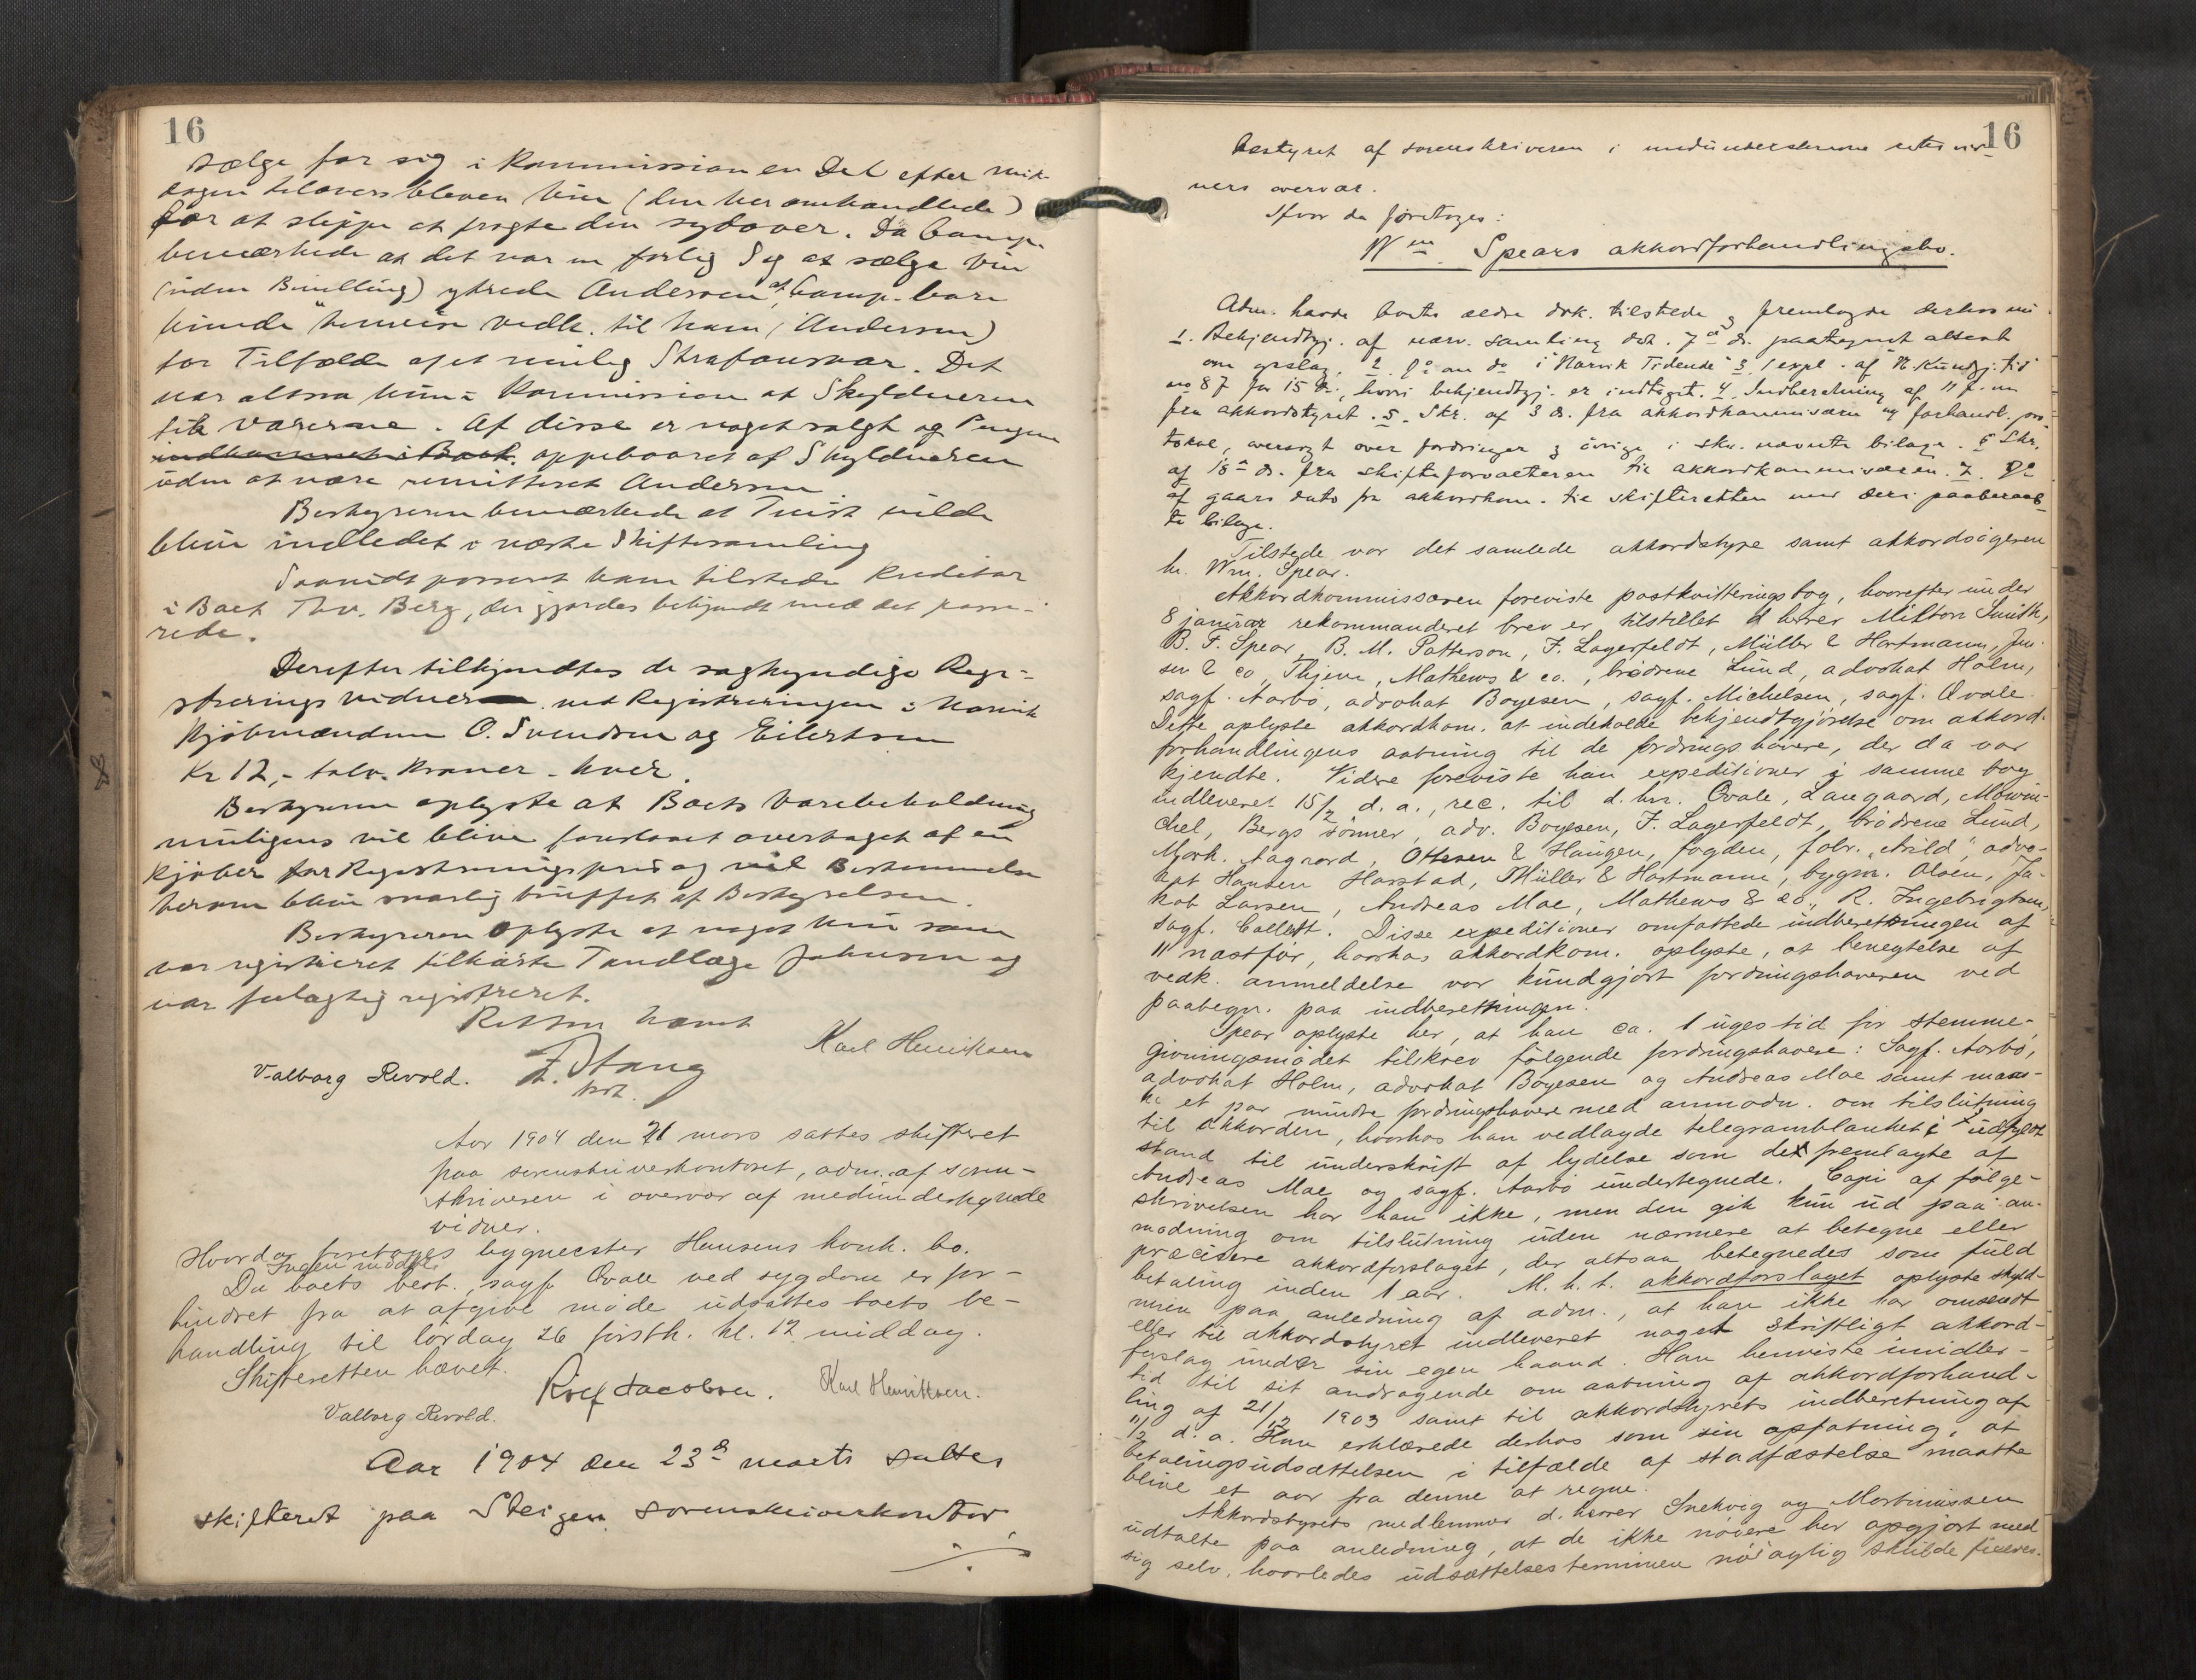 16
sælge for sig i Kommission en Del efter
tilovers bleven Vin (den her omhandlede)
for at slippe at fragte den sydover. Da Camp.
bemærkede at det var en farlig Seg at sælge Vin
(uden Bevilling) ytrede Andersen at Camp. bare
kunde henvise vedk. til ham (Andersen)
for Tilfælde af et mulig Strafansvar. Det
var altsaa kun i Kommission at Skyldneren
fik Varerne. Af disse er noget solgt og Pengene
oppebaaret af Skyldneren
uden at være remitteret Andersen.
Bestyreren bemærkede at Tvist vilde
blive indledet i næste Skiftesamling
Saavidt passeret kom tilstede Kreditor
i Boet Thv. Berg, der gjordes bekjendt med det passe-
rede.
Derefter tilkjendtes de sagkyndige Regi-
strerings vidner ved Registreringen i Narvik
Kjøbmændene O. Svendsen og Eilertsen
Kr 12,- tolv Kroner - hver.
Bestyreren oplyste at Boets Varebeholdning
muligens vil blive overtaget af en
Kjøber for Registreringspris og vil Bestemmelse
herom blive snarlig truffet af Bestyrelsen.
Bestyreren oplyste at noget Vin som
var registreret tilhørte Tandlæge Johnsen og
var feilagtig registreret.
Retten hævet
Karl Henriksen
Valborg Revold. F. Stang
Aar 1904 den 21 mars sattes skifteret
paa sorenskriverkontoret, adm. af soren-
skriveren i overvær af medundertegnede
vidner.
Hvorda foretoges bygmester Hansens konk. bo.
Ingen mødte
Da boets best., sagf. Qvale ved sygdom er for-
hindret fra at afgive møde udsattes boets be-
handling til lørdag 26 førstk. kl. 12 middag.
Skifteretten hævet.
Rolf Jacobsen. Karl Henriksen.
Valborg Revold.
Aar 1904 den 23de marts sattes
skifteret paa Steigen sorenskriverkontor
16
bestyret af sorenskriveren i medunderskrevne retsvid-
ners overvær.
Hvor da foretoges:
Wm Spears akkordforhandlingsbo.
Adm. havde boets ældre dok. tilstede og fremlagde derhos nu
1. Bekjendtgj. af nærv. samling dat. 7de ds. paategnet attest
om opslag. 2. Do om do i "Narvik Tidende" 3. 1 expl. af N. Kundgj. tid
no 87 for 15 ds., hvori bekjendtgj. er indtaget. 4. Indberetning af 11 f. m
fra akkordstyret. 5. Skr. af 3 ds. fra akkordkommissæren og forhandl. pro-
tokol, oversigt over fordringer og øvrige i skr. nævnte bilage. 6 Skr.
af 18de ds. fra skifteforvalteren til akkordkommissæren. 7. Do
af gaars dato fra akkordkom. til skifteretten med deri paaberaab-
te bilage.
Tilstede var det samlede akkordstyre samt akkordsøgeren
hr. Wm. Spear.
Akkordkommissæren foreviste postkvitteringsbog, hvorefter under
8 januar rekommanderet brev er tilstillet d herrer Milton Smith,
B. F. Spear, B. M. Patterson, F. Lagerfeldt, Müller & Hartmann, Jen-
sen & co, Thjeme, Mathews & co., brødrene Lund, advokat Holm,
sagf. Aarbo, advokat Boyesen, sagf. Michelsen, sagf. Qvale.
Dette oplyste akkordkom. at indeholde bekjendtgjørelse om akkord-
forhandlingens aabning til de fordringshavere, der da var
kjendte. Videre foreviste han expeditioner i samme bog
indleveret 15/2 d. a., rec. til d. hrr. Qvale, Langaard, Mowin-
chel, Bergs sønner, adv. Boyesen, F. Lagerfeldt, brødrene Lund,
Mork. Aagaard, Ottesen & Haugen, fogden, fabr. "Arild", advo-
kat Hansen Harstad, Müller & Hartmann, bygm. Olsen, Ja-
kob Larsen, Andreas Moe, Mathews & co., R. Ingebrigtsen,
sagf. Collett. Disse expeditioner omfattede indberetningen af
11 næstfør, hvorhos akkordkom. oplyste, at benegtelse af
vedk. anmeldelse var kundgjort fordringshaveren ved
paategn. paa indberetningen.
Spear oplyste her, at han ca. 1 uges tid før stemme-
givningsmødet tilskrev følgende fordringshavere: Sagf. Aarbo,
advokat Holm, advokat Boyesen og Andreas Moe samt maas-
ke et par mindre fordringshavere med anmodn. om tilslutning
til akkorden, hvorhos han vedlagde telegramblanket i udfyldt
stand til underskrift af lydelse som det fremlagte af
Andreas Moe og sagf. Aarbo undertegnede. Copi af følge-
skrivelsen har han ikke, men den gik kun ud paa an-
modning om tilslutning uden nærmere at betegne eller
præcisere akkordforslaget, der altsaa betegnedes som fuld
betaling inden 1 aar. M. h. t. akkordforslaget oplyste skyld-
neren paa anledning af adm., at han ikke har omsendt
eller til akkordstyret indleveret noget skriftligt akkord-
forslag under sin egen haand. Han henviste imidler-
tid til sit andragende om aabning af akkordforhand-
ling af 21/12 1903 samt til akkordstyrets indberetning af
11/2 d. a. Han erklærede derhos som sin opfatning, at
betalingsudsættelsen i tilfælde af stadfæstelse maatte
blive et aar fra denne at regne.
Akkordstyrets medlemmer d. herrer Snekvig og Mortinussen
udtalte paa anledning, at de ikke nøiere har opgjort med
sig selv, hvorledes udsættelsesterminen nøiagtig skulde fixeres.